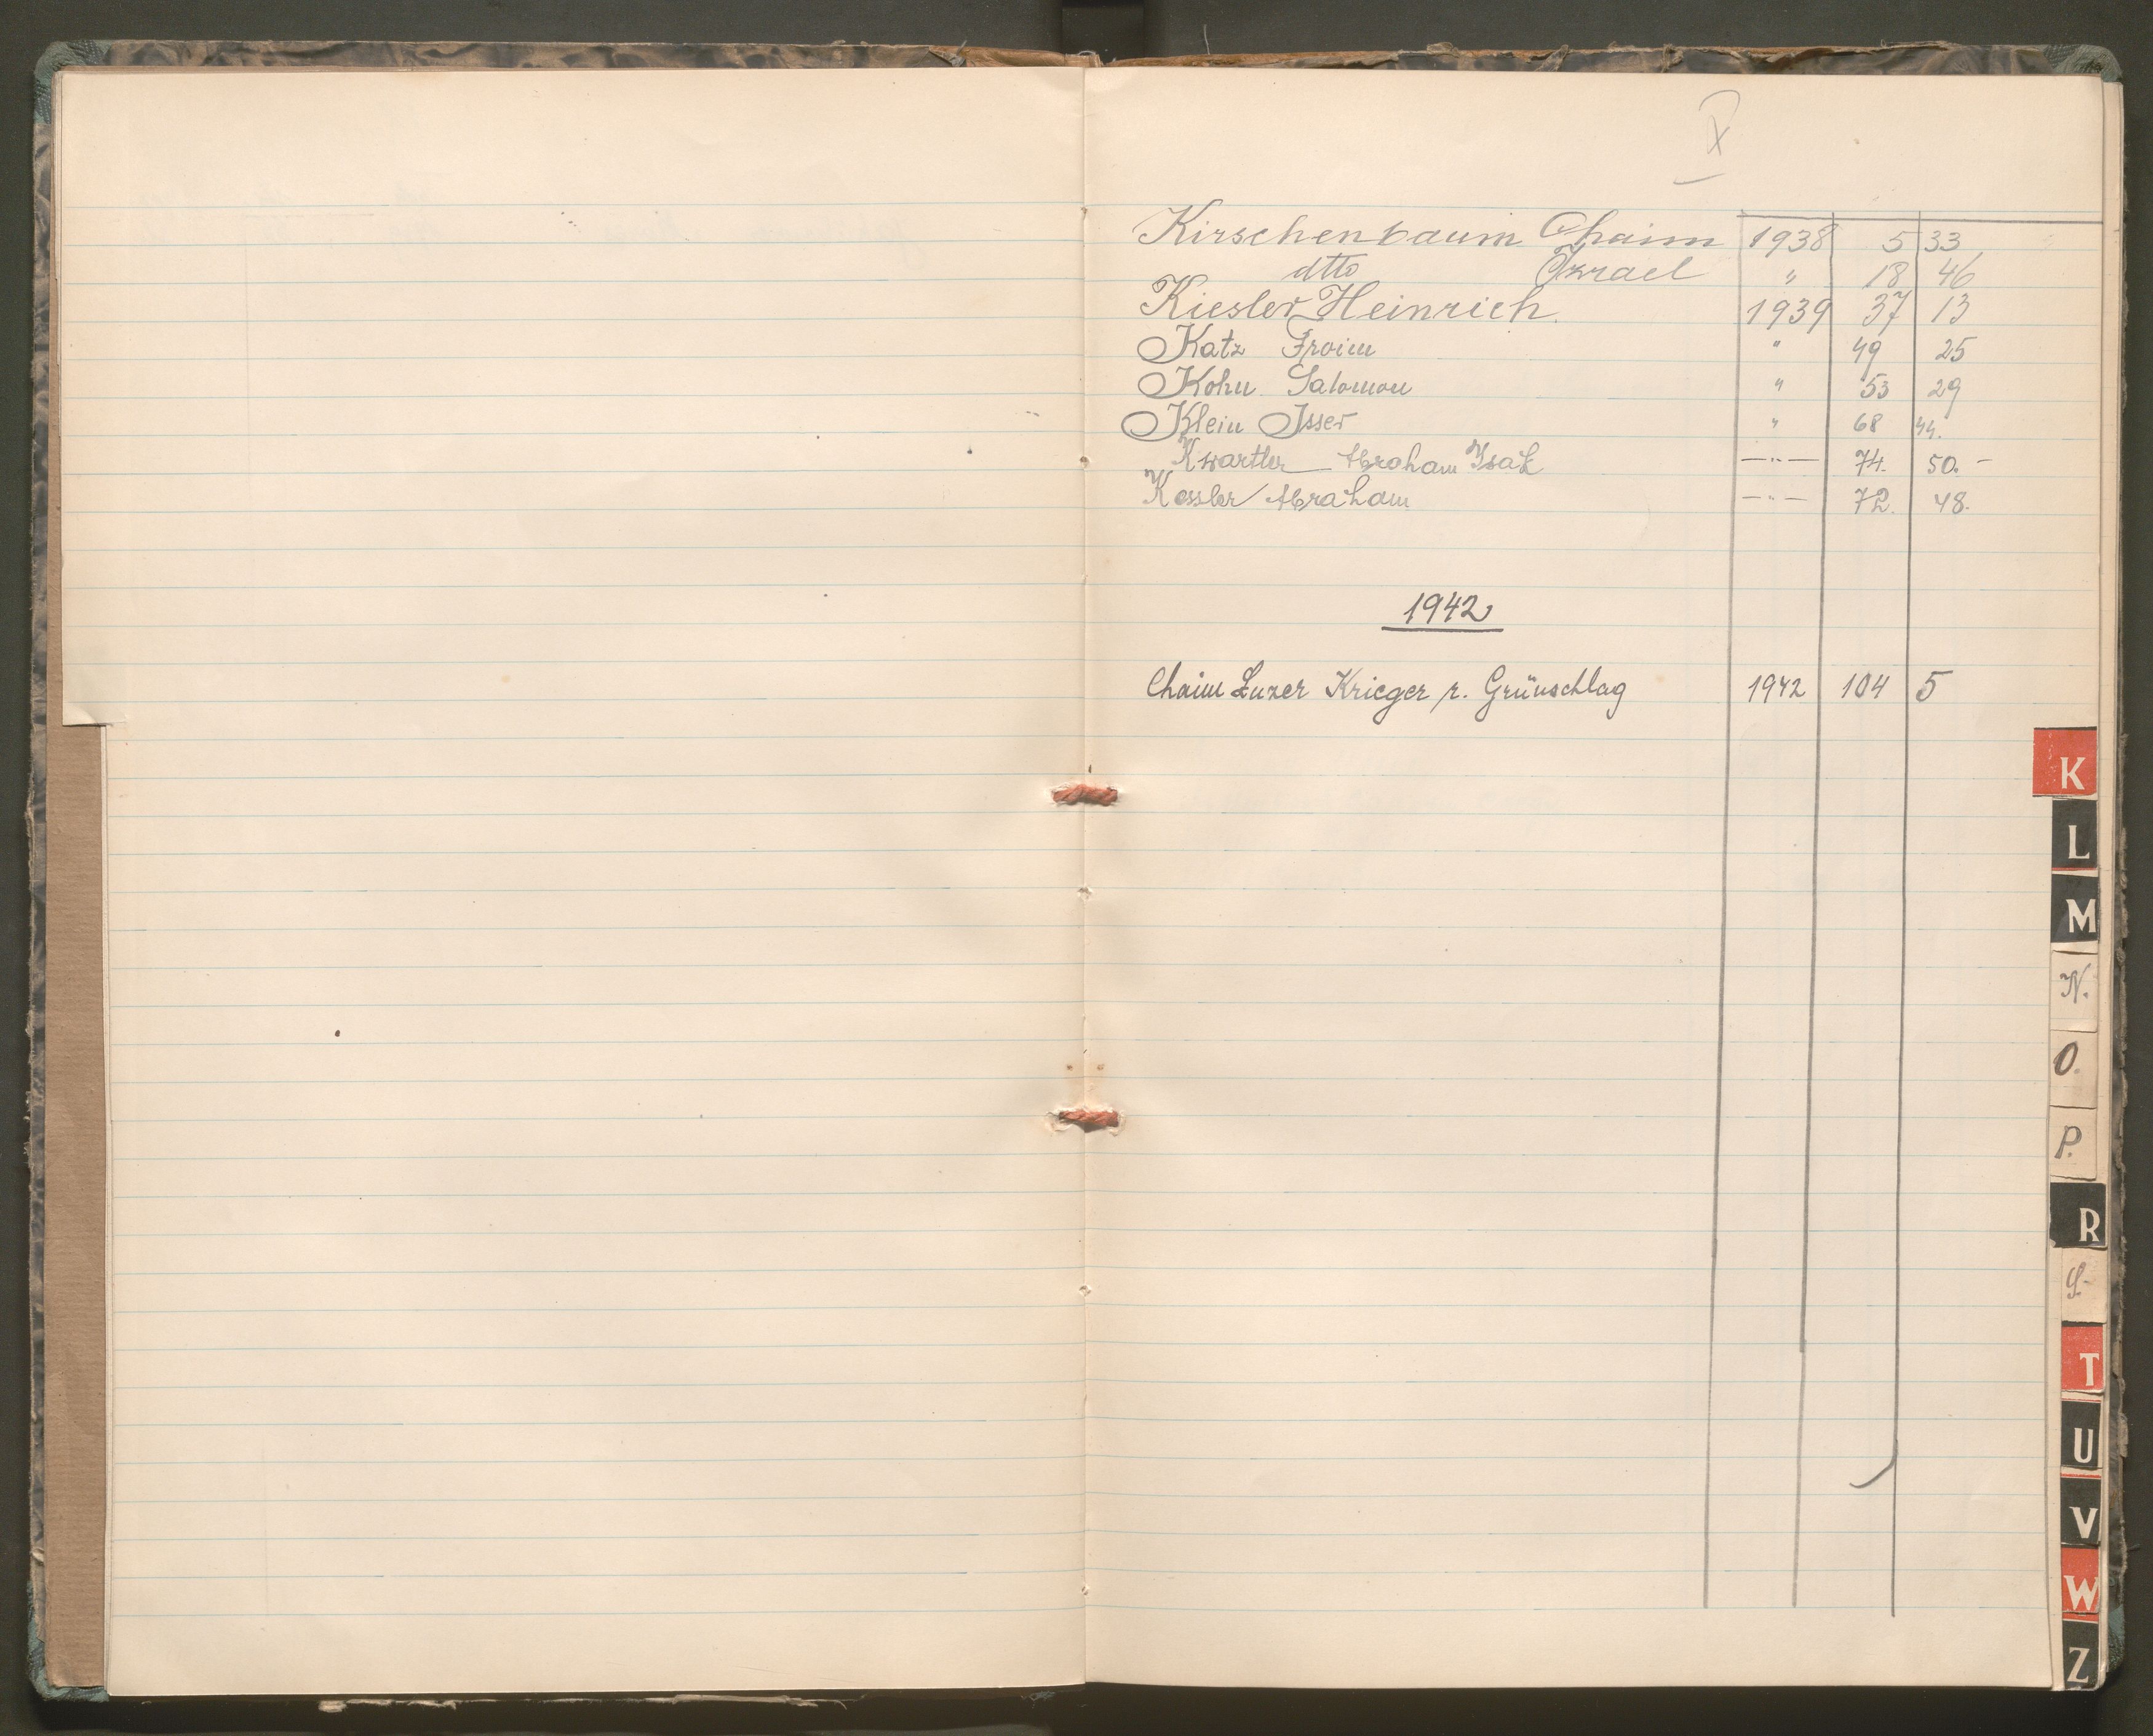 Kirschenbaum Chaim 1938 5 33
dtto Izrael " 18 46
Kiesler Heinrich 1939 37 13
Katz Froim " 49 25
Kohn Salomon " 53 29
Klein Isser " 68 44.
Kwartler Abraham Isak —"— 74. 50.-
Kessler Abraham —"— 72. 48.
1942
Chaim Luzer Krieger r. Grünschlag 1942 104 5
K
L
M
N.
O.
P.
R
S.
T
U
V
W
Z